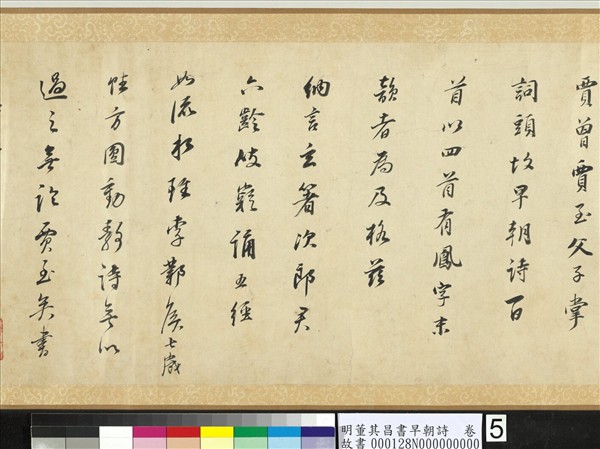 賈曾賈至父子掌
詞頭故早朝詩百
首以四首有鳳字末
韻者為及格茲
納言玄箸次郎君
六齡岐嶷誦五經
如流水雖李鄴侯七歲
賦方圓動靜詩無以
過之無論賈至矣書
明董其昌書早朝詩 卷
故書000128N000000000
5